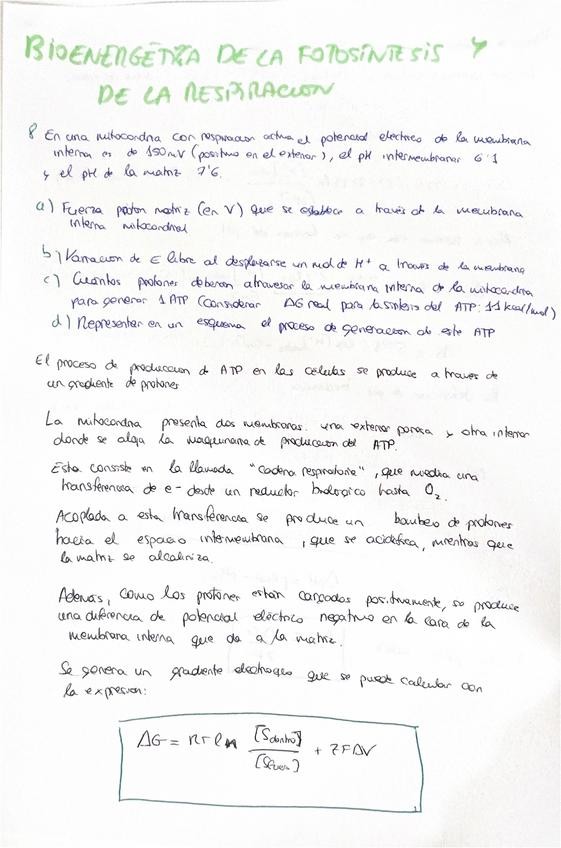 BIOENERGÉTICA DE LA FOTOSÍNTESIS Y
DE LA RESPIRACION
8 En una mitocondria con respiracion activa el potencial electrico de la membrana
interna es de 150 mV (positivo en el exterior), el pH intermembranar 6'1
y el pH de la matriz 7'6.
a) Fuerza proton motriz (en V) que se establece a través de la membrana
interna mitocondrial
b) Variacion de E libre al desplazarse un mol de H+ a traves de la membrana
c) Cuántos protones deberan atravesar la membrana interna de la mitocondria
para generar 1 ATP (considerar ΔG real para la sintesis del ATP: 11 kcal/mol)
d) Representar en un esquema el proceso de generacion de este ATP
El proceso de produccion de ATP en las celulas se produce a traves de
un gradiente de protones
La mitocondria presenta dos membranas. una exterior porosa y otra interior
donde se aloja la maquinaria de produccion del ATP.
Esta consiste en la llamada "Cadena respiratoria", que media una
transferencia de e- desde un reductor biologico hasta O2.
Acoplada a esta transferencia se produce un bombeo de protones
hacia el espacio intermembrana, que se acidifica, mientras que
la matriz se alcaliniza.
Además, como los protones están cargados positivamente, se produce
una diferencia de potencial eléctrico negativo en la cara de la
membrana interna que da a la matriz.
Se genera un gradiente que se puede calcular con
la expresion:
ΔG = RT ln [Sdentro] / [Sfuera] + ZFΔV